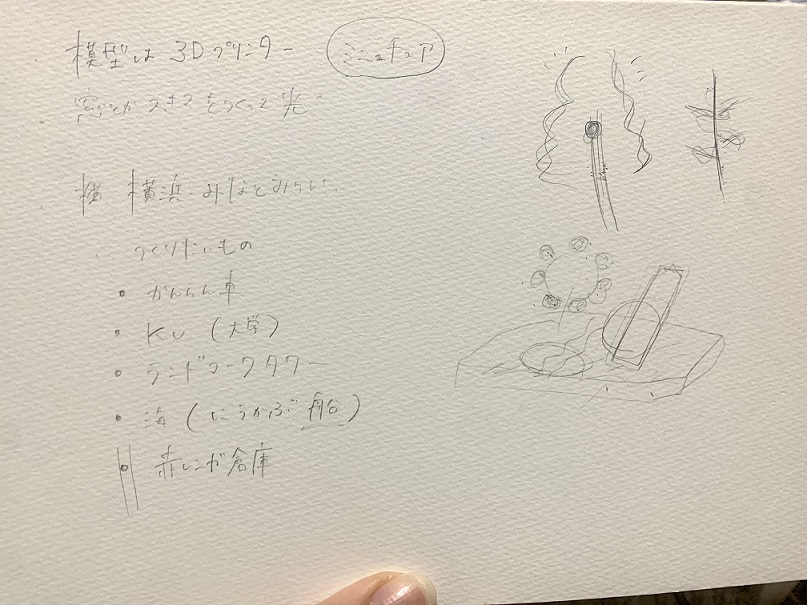 模型は 3Dプリンター ミニュチュア
窓とかスキマをつくって光
横浜・みなとみらい
つくりたいもの
・かんらん車
・KU (大学)
・ランドマークタワー
・海 (にうかぶ船)
・赤レンガ倉庫